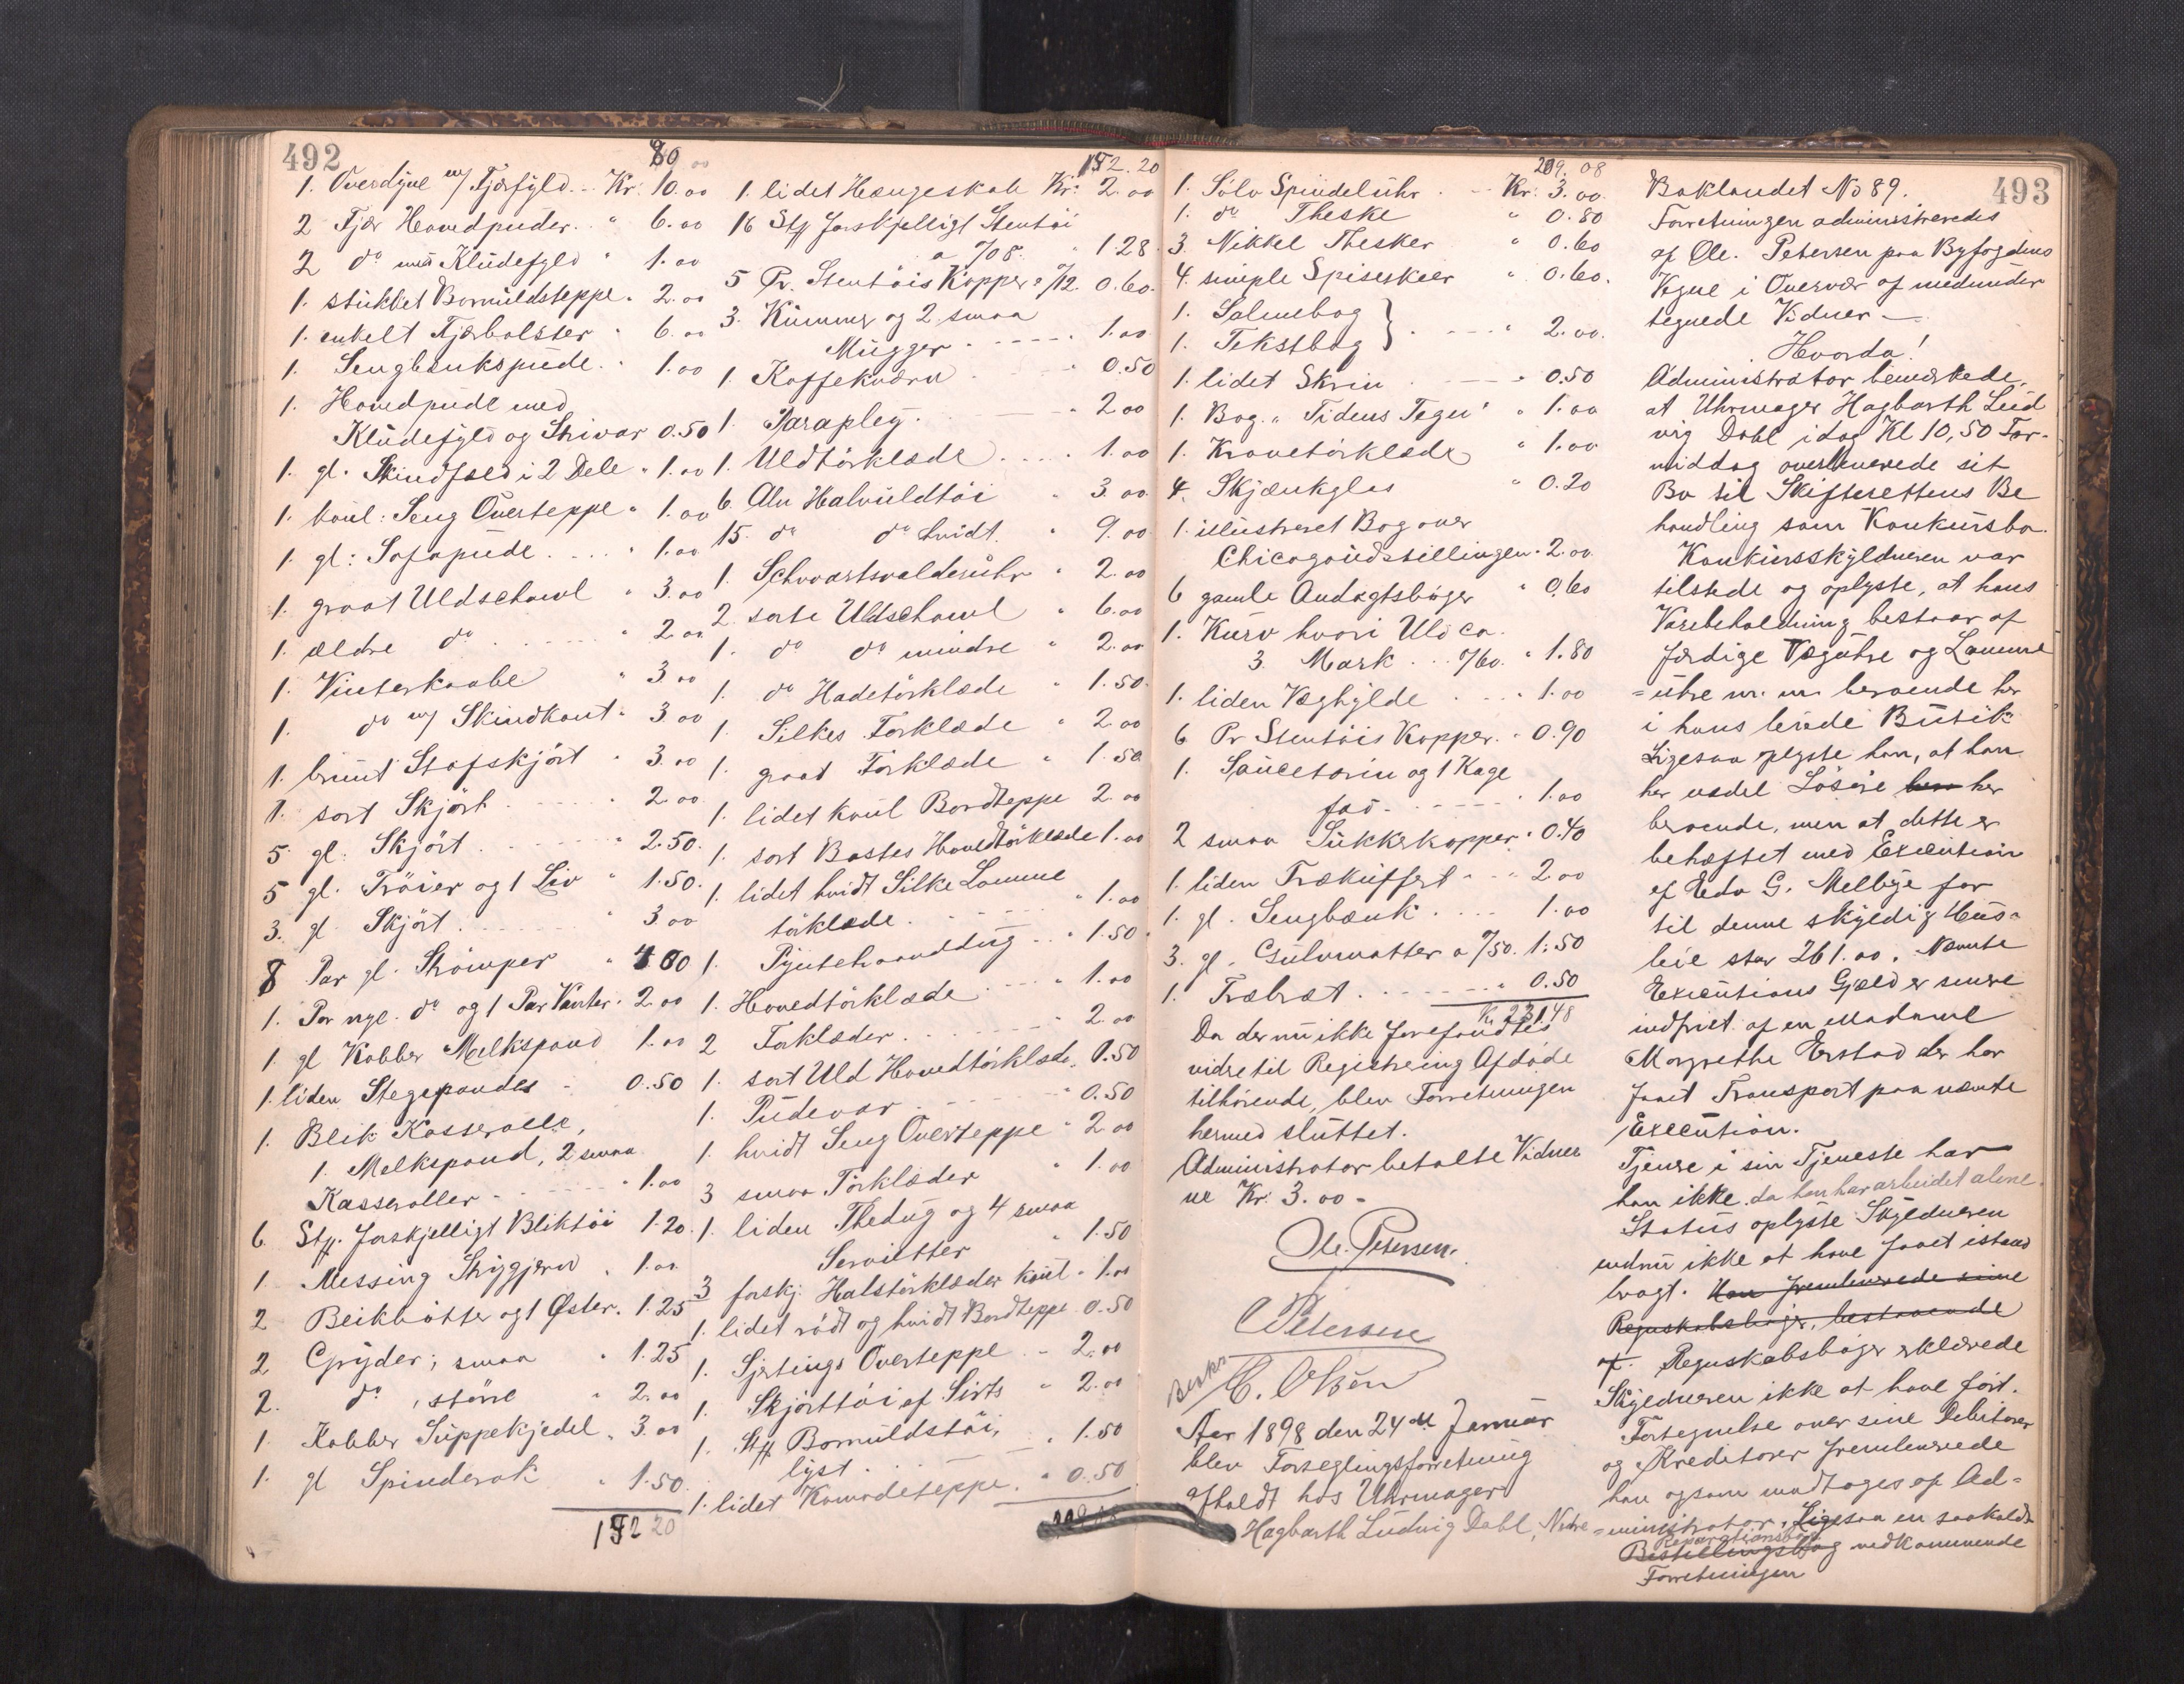 492
80 00
1. Overdyne m/ Fjærfyld - Kr: 10.00
2 Fjær Hovedpuder. " 6.00
2 do med Kludefyld " 1.00
1. stukket Bomuldsteppe " 2.00
1. enkelt Fjærbolster " 6.00
1. Sengbænkspude. " 1.00
1. Hovedpude med
Kludefyld og Strivar 0.50
1. gl. Skindfeld i 2 Dele " 1.00
1. koul: Seng Overteppe " 1.00
1 gl: Sofapude. . . . " 1.00
1. graat Uldschawl " 3.00
1. ældre do . . . " 2.00
1. Vinterkaabe " 3.00
1. do m/ Skindkant " 3.00
1. brunt Stofskjört " 3.00
1. sort Skjört . . . 2.00
5 gl: Skjört . . . " 2.50.
5 gl. Tröier og 1 Liv " 1.50.
3. gl. Skjört. . . . " 3.00
8 Par gl. Strömper " 4.00
1. Par nye do og 1 Par Vanter. 2.00
1. gl Kobber Melkspand 1.00
1. liden Stegepande - 0.50
1. Blik Kasserolle,
1. Melkspand, 2 smaa
Kasseroller - . . . " 1.00
6. Stk. forskjelligt Bliktöi 1.20.
1. Messing Strygjern " 1.00
2 Blikbötter og 1 Öster. 1.25
2 Gryder, smaa " 1.25
2. do , större " 2.00
1. Kobber Suppekjedel " 3.00
1. gl Spinderok " 1.50.
152 20
152.20
1. lidet Hængeskab Kr: 2.00
16 Stk forskjelligt Stentöi
a "/08. " 1.28.
5 Pr. Stentöis Kopper a "/12. 0.60.
3. Kummer og 2 smaa
Mugger - - - - - 1.00
1. Kaffekværn . . " 0.50
1. Paraply. . . . " 2.00
1. Uldtörklæde . . . . 1.00
6 Aln Halvuldtöi " 3.00.
15. do do hvidt. " 9.00
1. Schwartsvalderuhr " 2.00
2 sorte Uldschawl " 6.00
1. do do mindre " 2.00
1. do Hadetörklæde " 1.50.
1. Silkes Forklæde " 2.00
1. graat Forklæde " 1.50
1. lidet koul Bordteppe 2.00
1. sort Bastes Hovedtörklæde 1.00
1. lidet hvidt Silke Lomme
törklæde. . . . " 1.00
1. Pyntehaanddug . . " 1.50.
1. Hovedtörklæde . . . " 1.00
2 Forklæder. . . . " 2.00
1. sort Uld Hovedtörklæde. 1.50
1. Pudevar . . . " 0.50
1. hvidt Seng Overteppe " 2.00
3 smaa Törklæder " 1.00
1. liden Thedug og 4 smaa
Servietter " 1.50
3 forskj. Halstörklæder koul " 1.00
1. lidet rödt og hvidt Bordteppe 0.50
1. Sjetings Overteppe . - 2.00
1. Skjörttöi af Sirts " 2.00
1. Stk Bomuldstöi,
lyst. " 1.50
1. lidet Komodeteppe. " 0.50
209.08
1. Sölv Spindeluhr . - Kr: 3.00.
1. do Theske " 0.80
3. Nikkel Thesker " 0.60
4. simple Spiseskeer " 0.60.
1. Salmebog
1. Tekstbog } . . . " 2.00.
1. lidet Skrin . - " 0.50
1. Bog. "Tidens Tegn" " 1.00
1. Kravetörklæde " 1.00
4. Skjænkglas " 0.20
1. illustreret Bog over
Chicagoudstillingen " 2.00
6 gamle Andagtsböger " 0.60
1. Kurv hvori Uld ca.
3. Mark . . "/60. " 1.80
1. liden Væghylde . . " 1.00
6 Pr Stentöis Kopper. " 0.90
1. Saucetærin og 1 Kage
fad - . . . . " 1.00
2 smaa Sukkerkopper. " 0.40
1. liden Trækuffert " " 2.00
1. gl. Sengbænk. . . . 1.00
3. gl. Gulvmatter a "/50. 1.50
1. Træbræt. . . . . " 0.50
Kr 231.48
Da der nu ikke forefandtes
vidre til Registrering Afdöde
tilhörende, blev Forretningen
hermed sluttet.
Administrator betalte Vidner
ne Kr: 3.00 -
Ole. Petersen.
Petersen
C. Olsen
Aar 1898 den 24de Januar
blev Forseglingsforretning
afholdt hos Uhrmager
Hagbarth Ludvig Dahl, Nedre
493
Baklandet No 89.
Forretningen administreredes
af Ole. Petersen paa Byfogdens
Vegne i Overvær af medunder
tegnede Vidner —
Hvorda!
Administrator bemærkede,
at Uhrmager Hagbarth Lud
vig Dahl idag Kl 10,50 For-
middag overleverede sit
Bo til Skifterettens Be
handling som Konkursbo.
Konkursskyldneren var
tilstede og oplyste, at hans
Varebeholdning bestaar af
færdige Væguhre og Lomme
=uhre m. m. beroende her
i hans leiede Butik
Ligesaa oplyste han, at han
her endel Lösöre her
beroende, men at dette er
behæftet med Execution
af Edv G. Melbye for
til denne skyldig Hus-
leie stor 261.00. Nævnte
Executions Gjæld er senere
indfriet af en Madame
Margrethe Erstad der har
faaet Transport paa nævnte
Execution.
Tjenere i sin Tjeneste har
han ikke da han har arbeidet alene.
Status oplyste Skyldneren
endnu ikke at have faaet istand
bragt. Han fremleverede sine
Regnskabsböger, bestaaende
af. Regnskabsböger erklærede
Skyldneren ikke at have fört.
Fortegnelse over sine Debitorer
og Kreditorer fremleverede
han ogsaa modtages af Ad-
=ministrator. Ligesaa en saakaldt
Reparationsbog
Bestillingsbog vedkommende
Forretningen